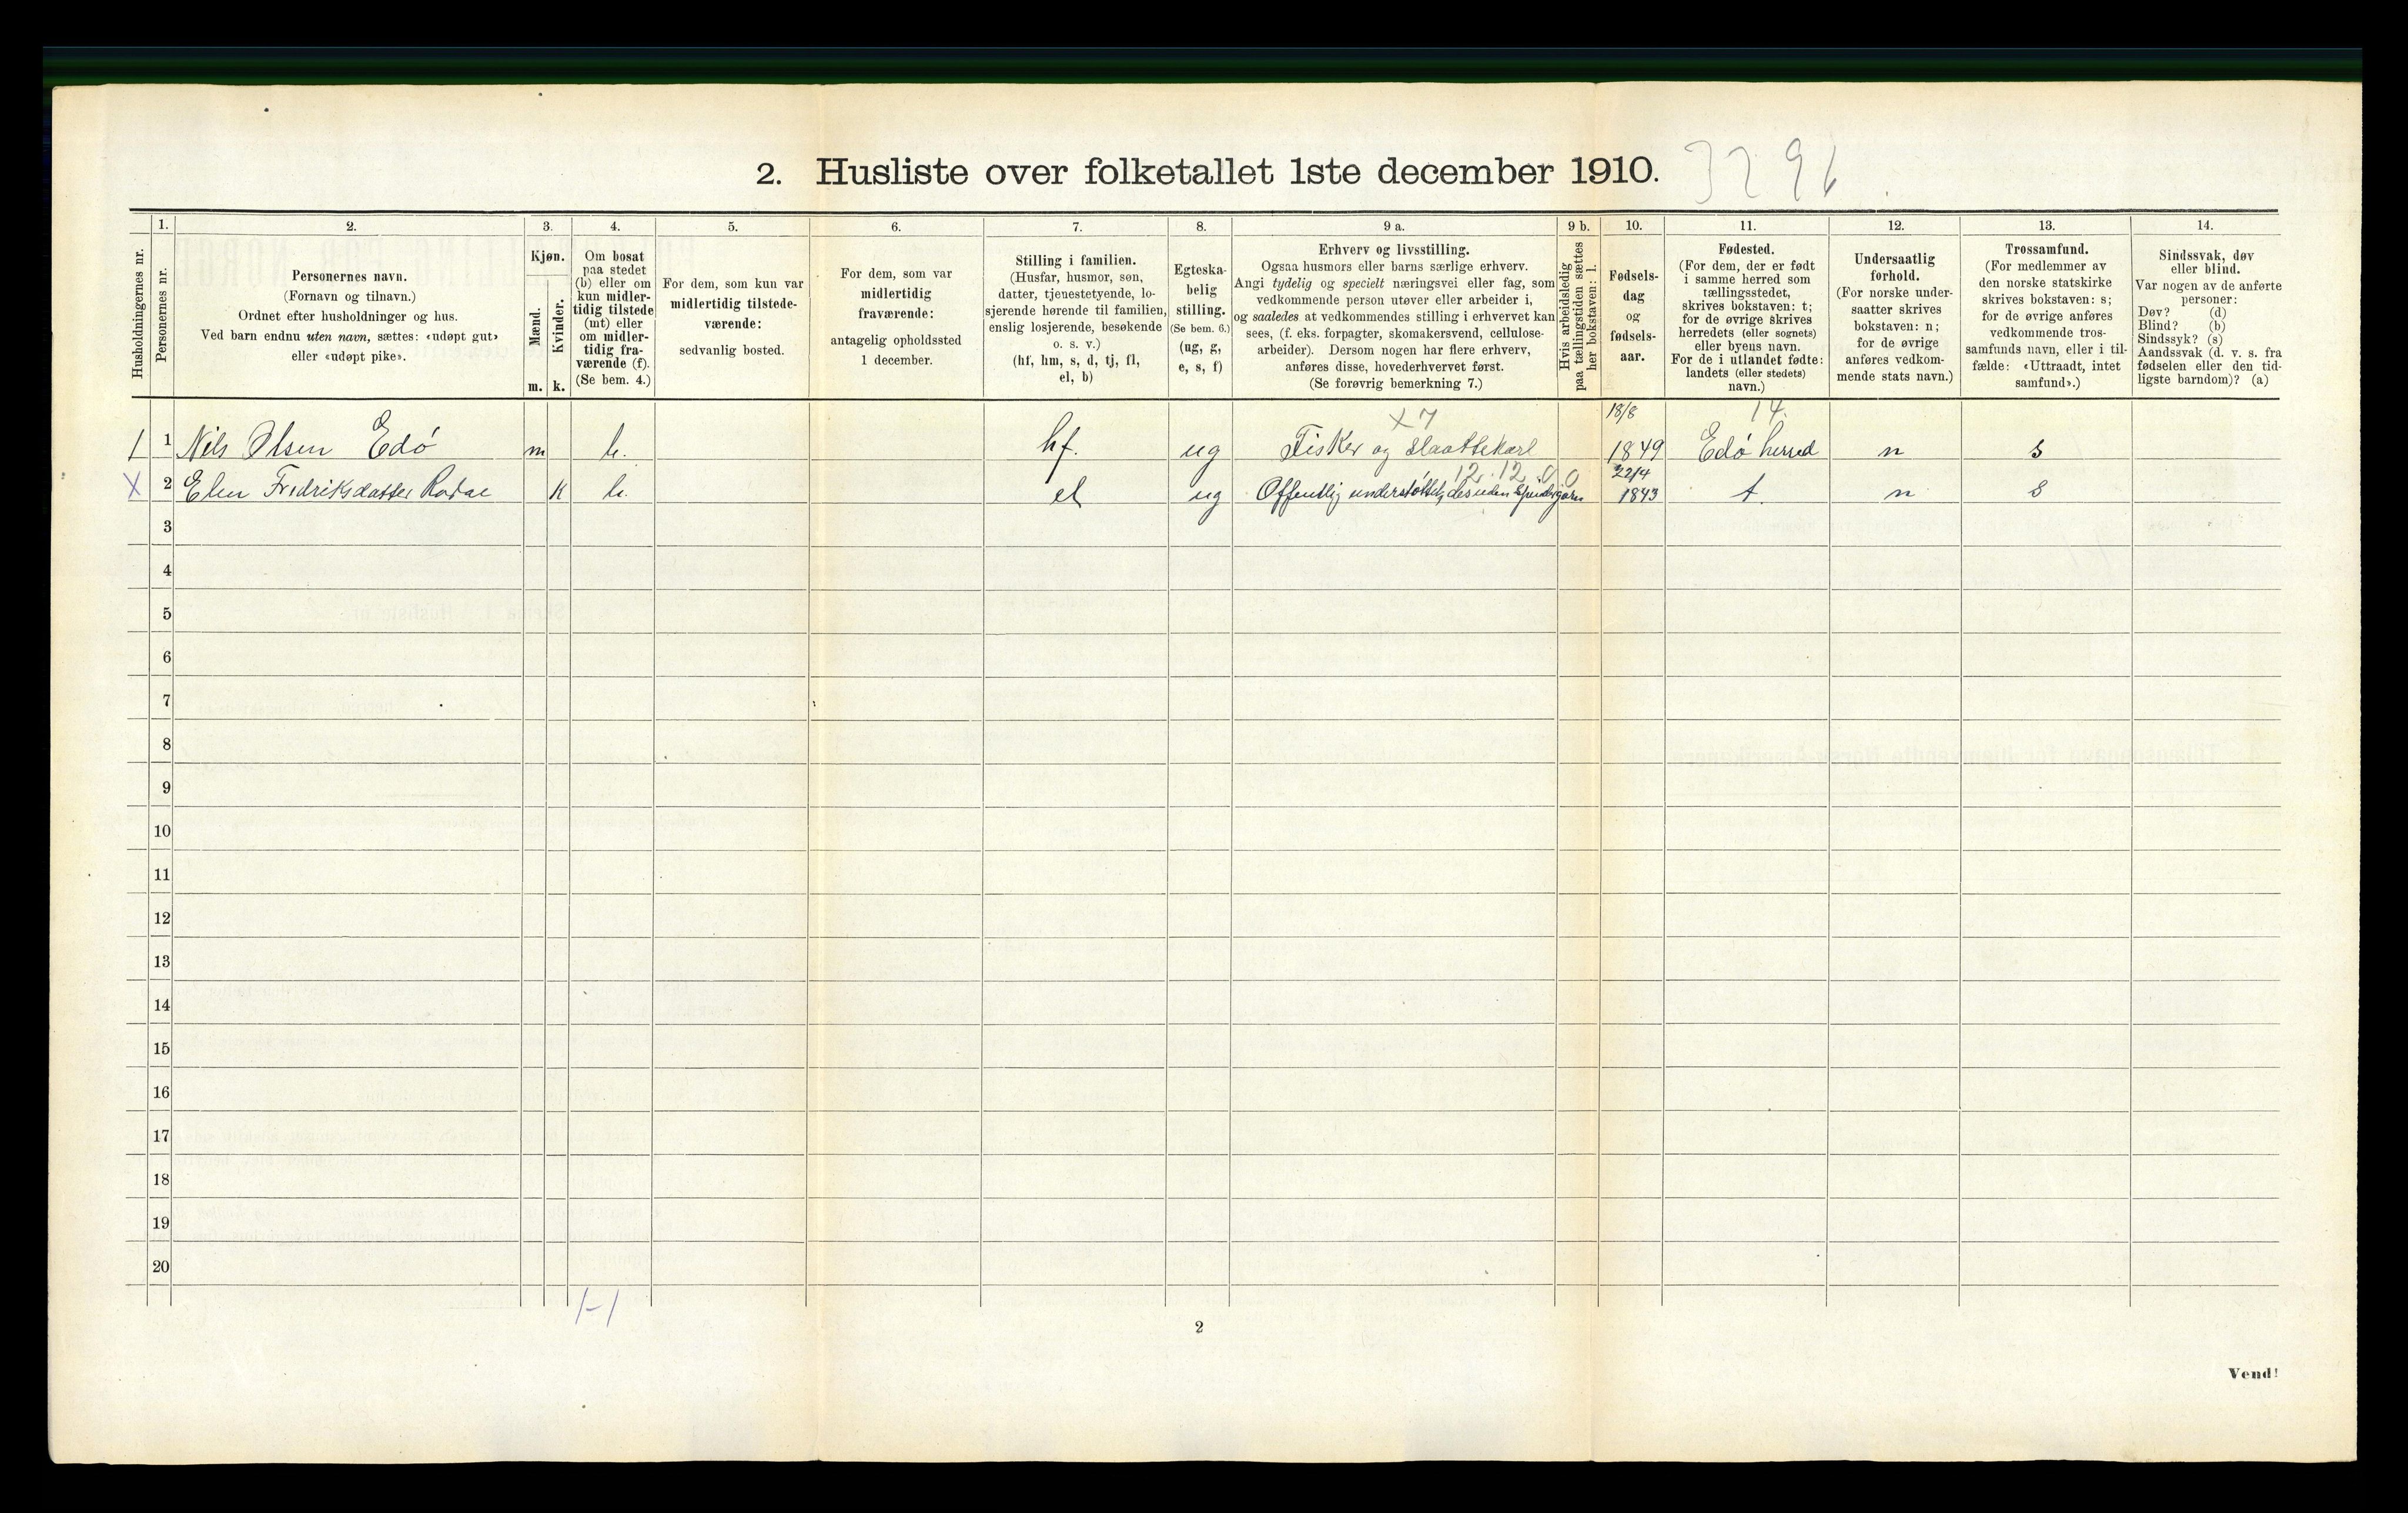 2. Husliste over folketallet 1ste december 1910. 3296
1. 2. 3. 4. 5. 6. 7. 8. 9 a. 9 b. 10. 11. 12. 13. 14.
Husholdningernes nr.
Personernes nr.
Personernes navn.
(Fornavn og tilnavn.)
Ordnet efter husholdninger og hus.
Ved barn endnu uten navn, sættes: «udøpt gut»
eller «udøpt pike».
Kjøn.
Mænd.
Kvinder.
m. k.
Om bosat
paa stedet
(b) eller om
kun midler-
tidig tilstede
(mt) eller
om midler-
tidig fra-
værende (f).
(Se bem. 4.)
For dem, som kun var
midlertidig tilstede-
værende:
sedvanlig bosted.
For dem, som var
midlertidig
fraværende:
antagelig opholdssted
1 december.
Stilling i familien.
(Husfar, husmor, søn,
datter, tjenestetyende, lo-
sjerende hørende til familien,
enslig losjerende, besøkende
o. s. v.)
(hf, hm, s, d, tj, fl,
el, b)
Egteska-
belig
stilling.
(Se bem. 6.)
(ug, g,
e, s, f)
Erhverv og livsstilling.
Ogsaa husmors eller barns særlige erhverv.
Angi tydelig og specielt næringsvei eller fag, som
vedkommende person utøver eller arbeider i,
og saaledes at vedkommendes stilling i erhvervet kan
sees, (f. eks. forpagter, skomakersvend, cellulose-
arbeider). Dersom nogen har flere erhverv,
anføres disse, hovederhvervet først.
(Se forøvrig bemerkning 7.)
Hvis arbeidsledig
paa tællingstiden sættes
her bokstaven: l.
Fødsels-
dag
og
fødsels-
aar.
Fødested.
(For dem, der er født
i samme herred som
tællingsstedet,
skrives bokstaven: t;
for de øvrige skrives
herredets (eller sognets)
eller byens navn.
For de i utlandet fødte:
landets (eller stedets)
navn.)
Undersaatlig
forhold.
(For norske under-
saatter skrives
bokstaven: n;
for de øvrige
anføres vedkom-
mende stats navn.)
Trossamfund.
(For medlemmer av
den norske statskirke
skrives bokstaven: s;
for de øvrige anføres
vedkommende tros-
samfunds navn, eller i til-
fælde: «Uttraadt, intet
samfund».)
Sindssvak, døv
eller blind.
Var nogen av de anførte
personer:
Døv? (d)
Blind? (b)
Sindssyk? (s)
Aandssvak (d. v. s. fra
fødselen eller den tid-
ligste barndom)? (a)
X 7 18/8 14.
1 1 Nils Olsen Edø m b. hf. ug Fisker og Slaattekarl 1849 Edø herred n s
12.12.00 22/4
X 2 Elen Fredriksdatter Rodal k b. el ug Offentlig understøttet, desuden Spinder garn 1843 t. n s
3
4
5
6
7
8
9
10
11
12
13
14
15
16
17
18
19
20
1-1
2
Vend!